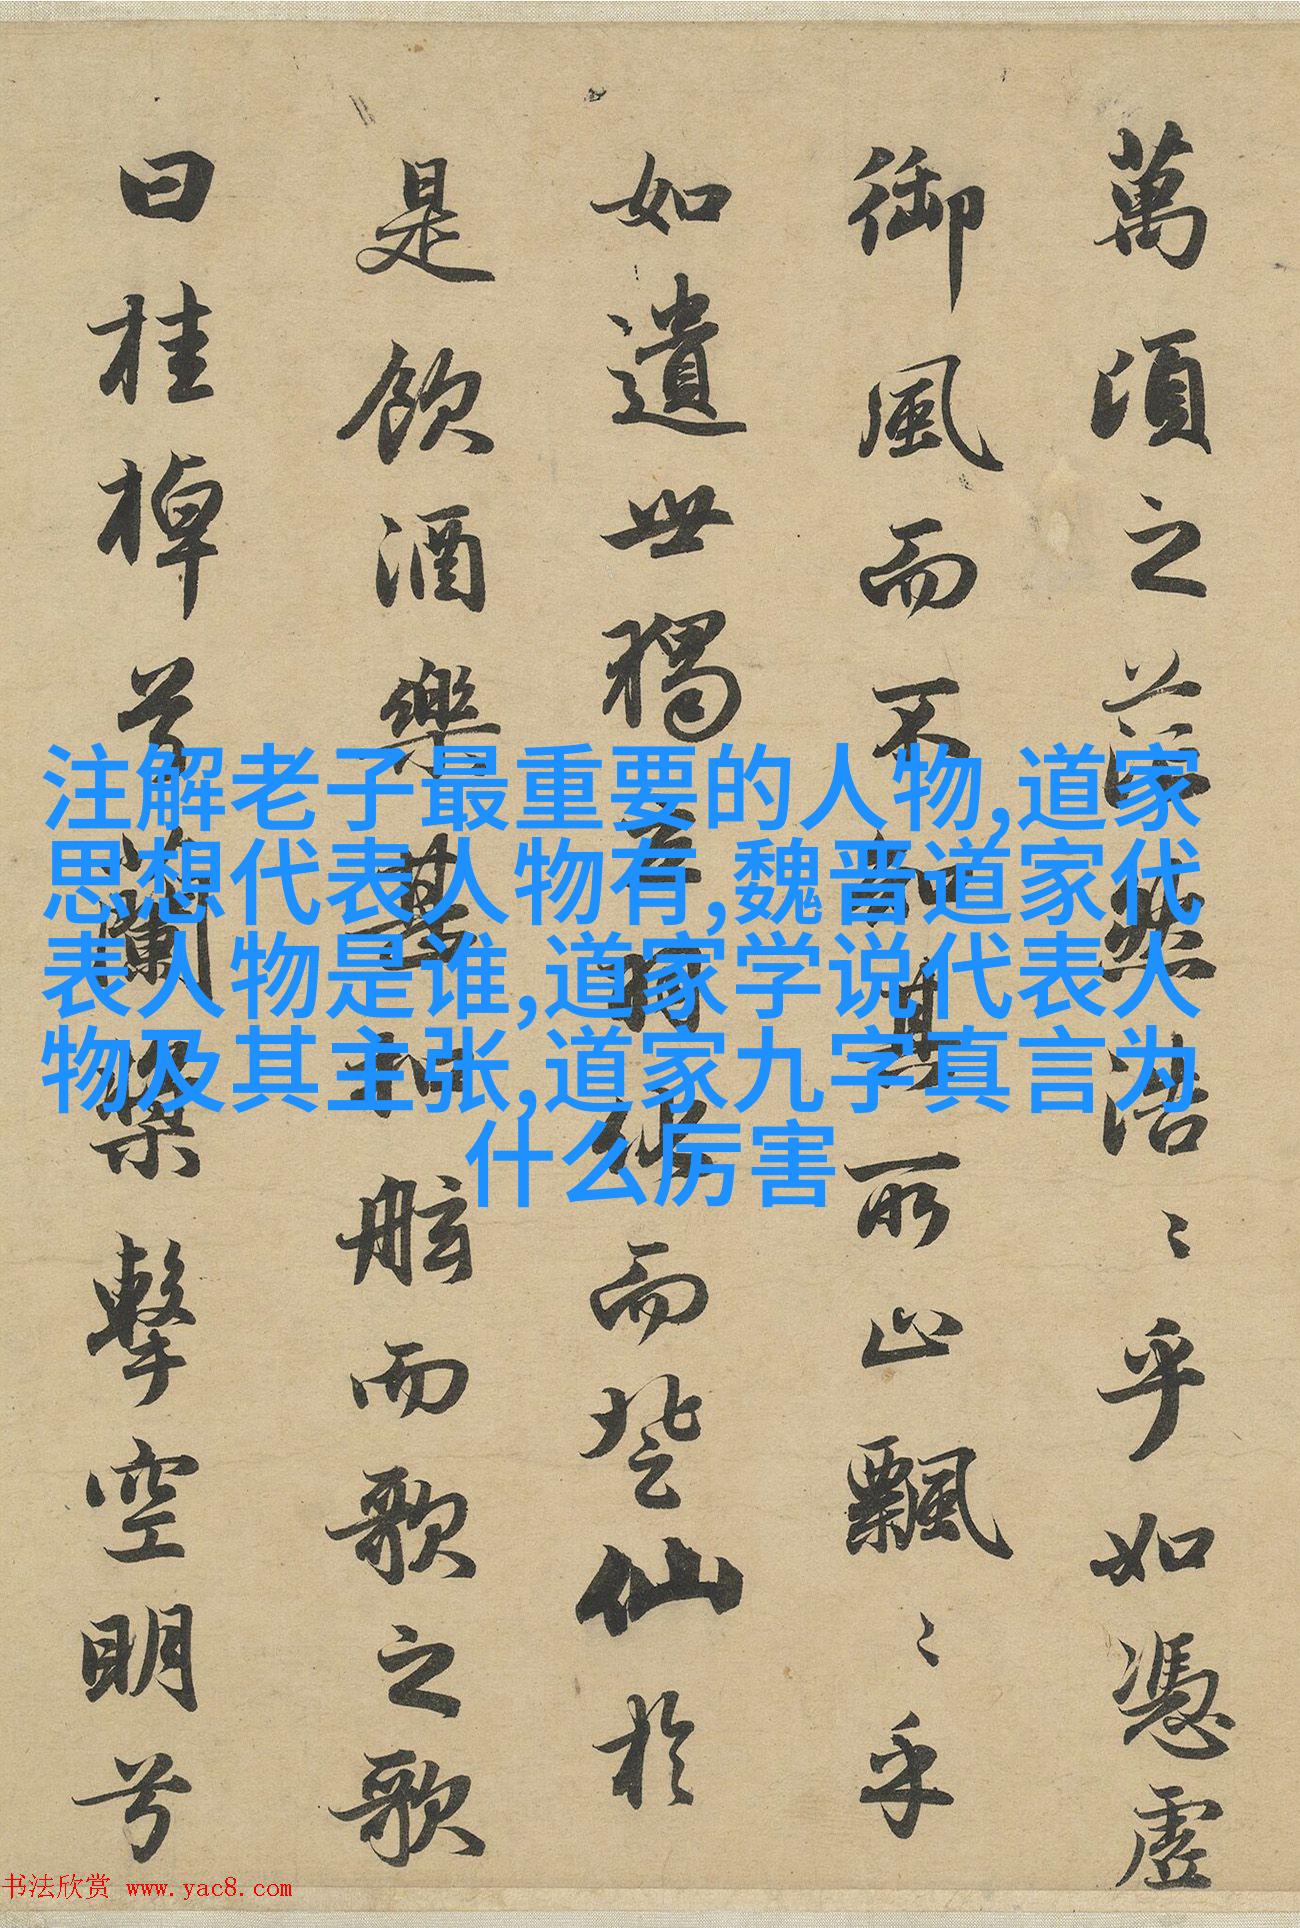 萬頃之茫然浩〻乎如憑虛
御風而不知其所止飄〻乎
如遺世獨立羽化而登仙於
是飲酒樂甚扣舷而歌之歌
曰桂棹兮蘭槳擊空明兮
注解老子最重要的人物,道家
思想代表人物有,魏晋道家代
表人物是谁,道家学说代表人
物及其主张,道家九字真言为
什么厉害
书法欣赏 www.yac8.com